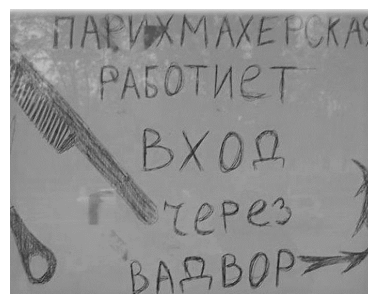 ПАРИХМАХЕРСКАЯ
РАБОТИЕТ
ВХОД
ЧЕРЕЗ
ВАДВОР